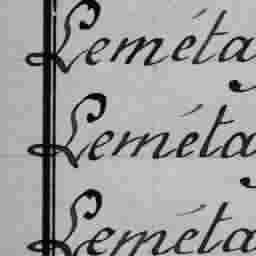 Leméta
Leméta
Leméta